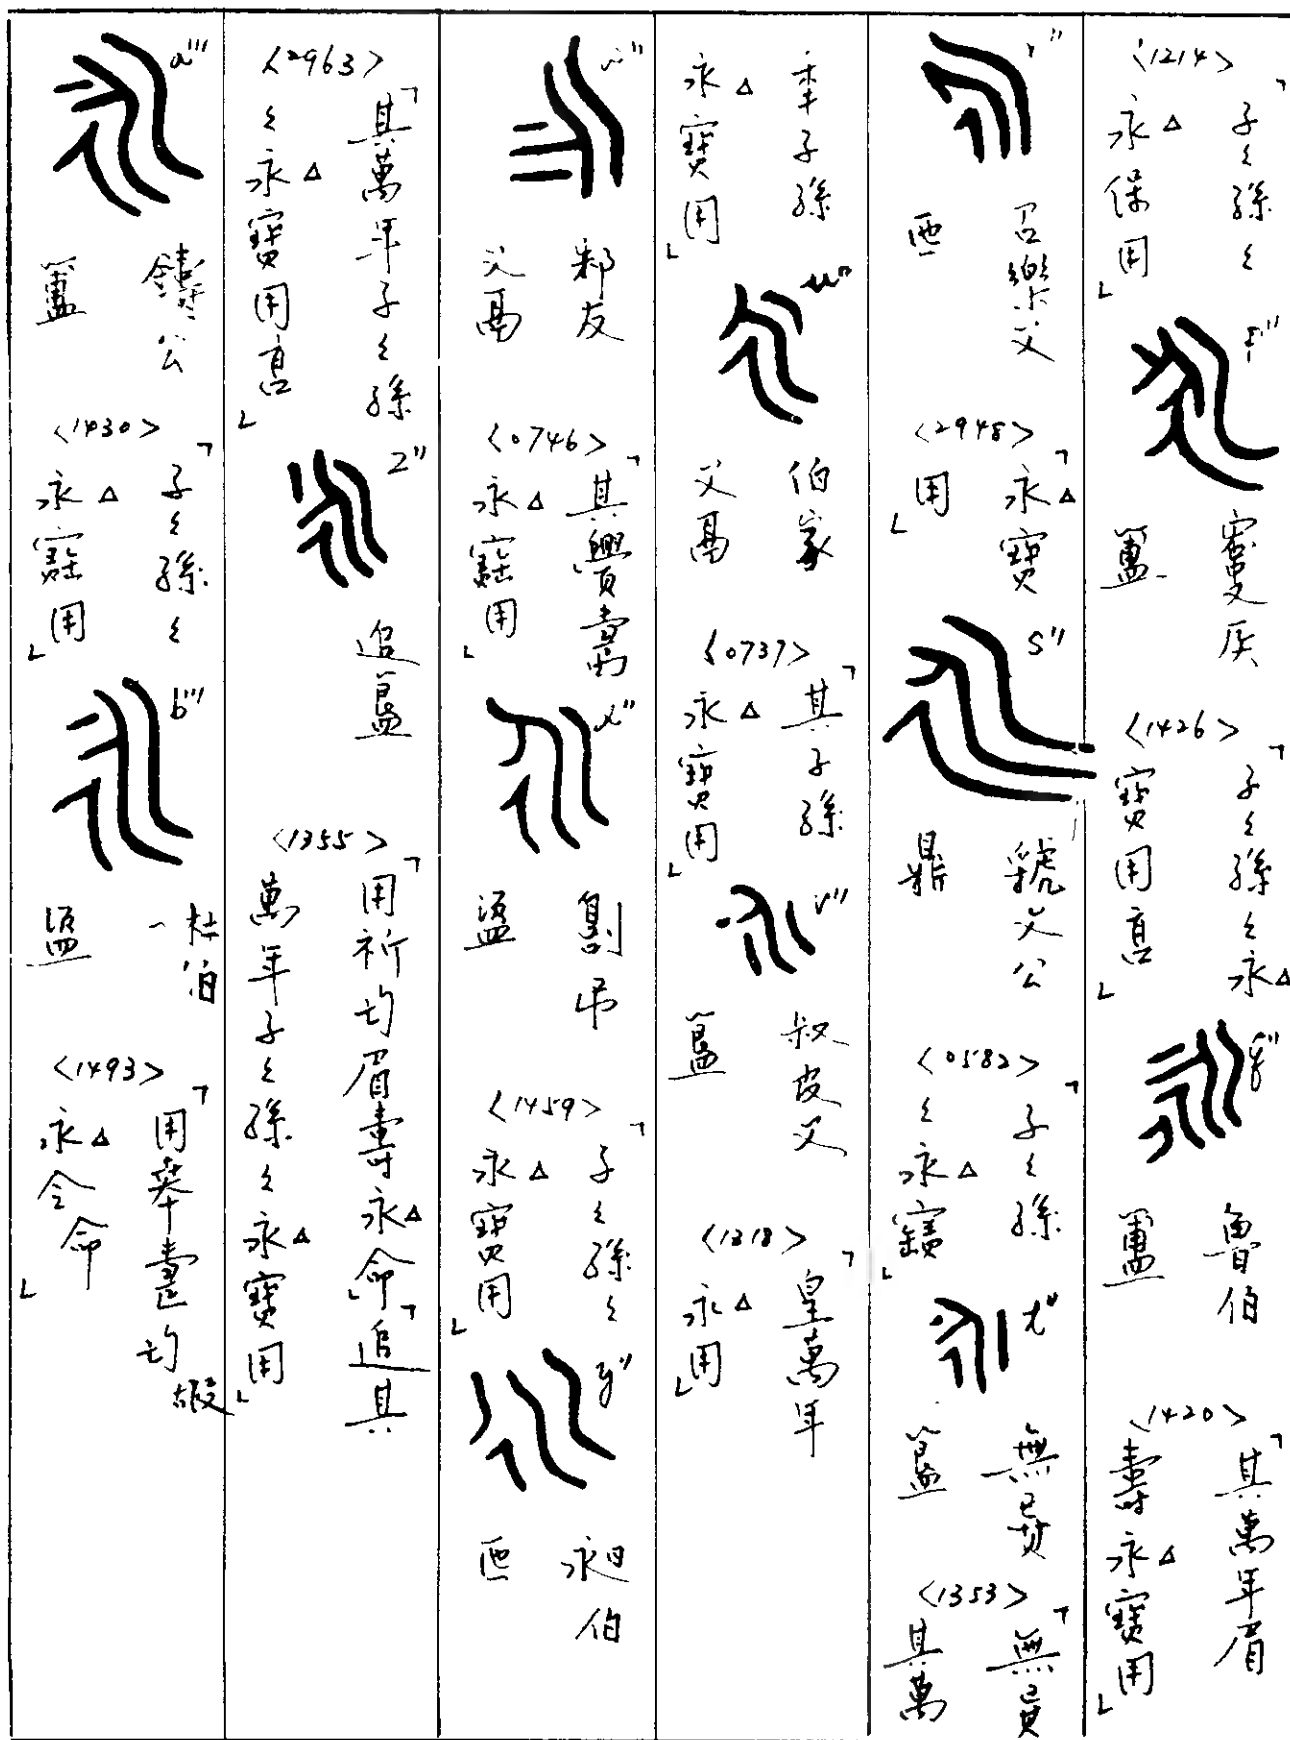 <1214>
「子〻孫〻
永△保用」
p''
𡩜灰
簠
<1426>
「子〻孫〻永△
寶用亯」
q''
魯伯
簠
<1420>
「其萬年眉
壽永△寶用」
r''
召樂父
匜
<2948>
「永△寶
用」
s''
虢文公
鼎
<0582>
「子〻孫
〻永△寶」
t''
無㠱
簋
<1353>
「無㠱
其萬
年子孫
永△寶用」
u''
伯家
父鬲
<0737>
「其子孫
永△寶用」
v''
叔皮父
簋
<1318>
「皇萬年
永△用」
w''
友
父鬲
<0746>
永△寶用」
x''
盨
<1459>
「子〻孫〻
永△寶用」
y''
伯
匜
<2963>
「其萬年子〻孫
〻永△寶用亯」
z''
追簋
<1355>
「用祈匄眉壽永△命」「追其
萬年子〻孫〻永△寶用」
a'''
鑄公
簠
<1430>
「子〻孫〻
永△寶用」
b'''
杜伯
盨
<1493>
「用𠦪壽匄
永△令命」